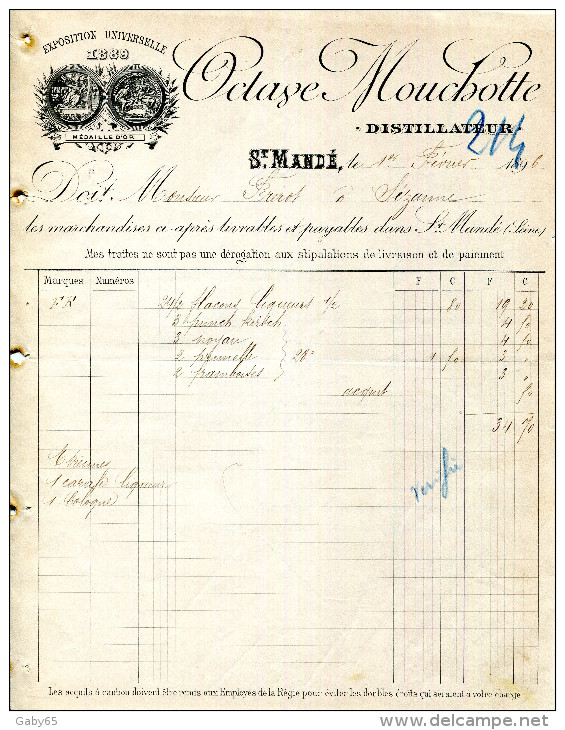 EXPOSITION UNIVERSELLE
1889
MÉDAILLE D'OR
Octave Mouchotte
DISTILLATEUR
204
St MANDÉ, le 1er Février 1896
Doit Monsieur Frérot à Sézanne
les marchandises ci-après livrables et payables dans St Mandé (Seine)
Mes traites ne sont pas une dérogation aux stipulations de livraison et de paiement
Marques Numéros F C F C
24 1/2 flacons liqueurs 1/2 80 19 20
3 punch kirsch 4 50
3 noyau 4 50
2 prunelle 28° 1 50 3 "
2 framboises 3 "
acquit 50
34 70
Etrennes
1 carafe liqueur
1 Cologne
Verifié
Les acquits à caution doivent être remis aux Employés de la Régie pour éviter les doubles droits qui seraient à votre charge
Gaby65
www.delcampe.net